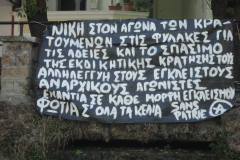 ΝΙΚΗ ΣΤΟΝ ΑΓΩΝΑ ΤΩΝ ΚΡΑ-
ΤΟΥΜΕΝΩΝ ΣΤΙΣ ΦΥΛΑΚΕΣ ΓΙΑ
ΤΙΣ ΑΔΕΙΕΣ ΚΑΙ ΤΟ ΣΠΑΣΙΜΟ
ΤΗΣ ΕΚΔΙΚΗΤΙΚΗΣ ΚΡΑΤΗΣΗΣ ΤΟΥΣ
ΑΛΛΗΛΕΓΓΥΗ ΣΤΟΥΣ ΕΓΚΛΕΙΣΤΟΥΣ
ΑΝΑΡΧΙΚΟΥΣ ΑΓΩΝΙΣΤΕΣ
ΕΝΑΝΤΙΑ ΣΕ ΚΑΘΕ ΜΟΡΦΗ ΕΓΚΛΕΙΣΜΟΥ
ΦΩΤΙΑ Σ' ΟΛΑ ΤΑ ΚΕΛΙΑ SANS
PATRIE